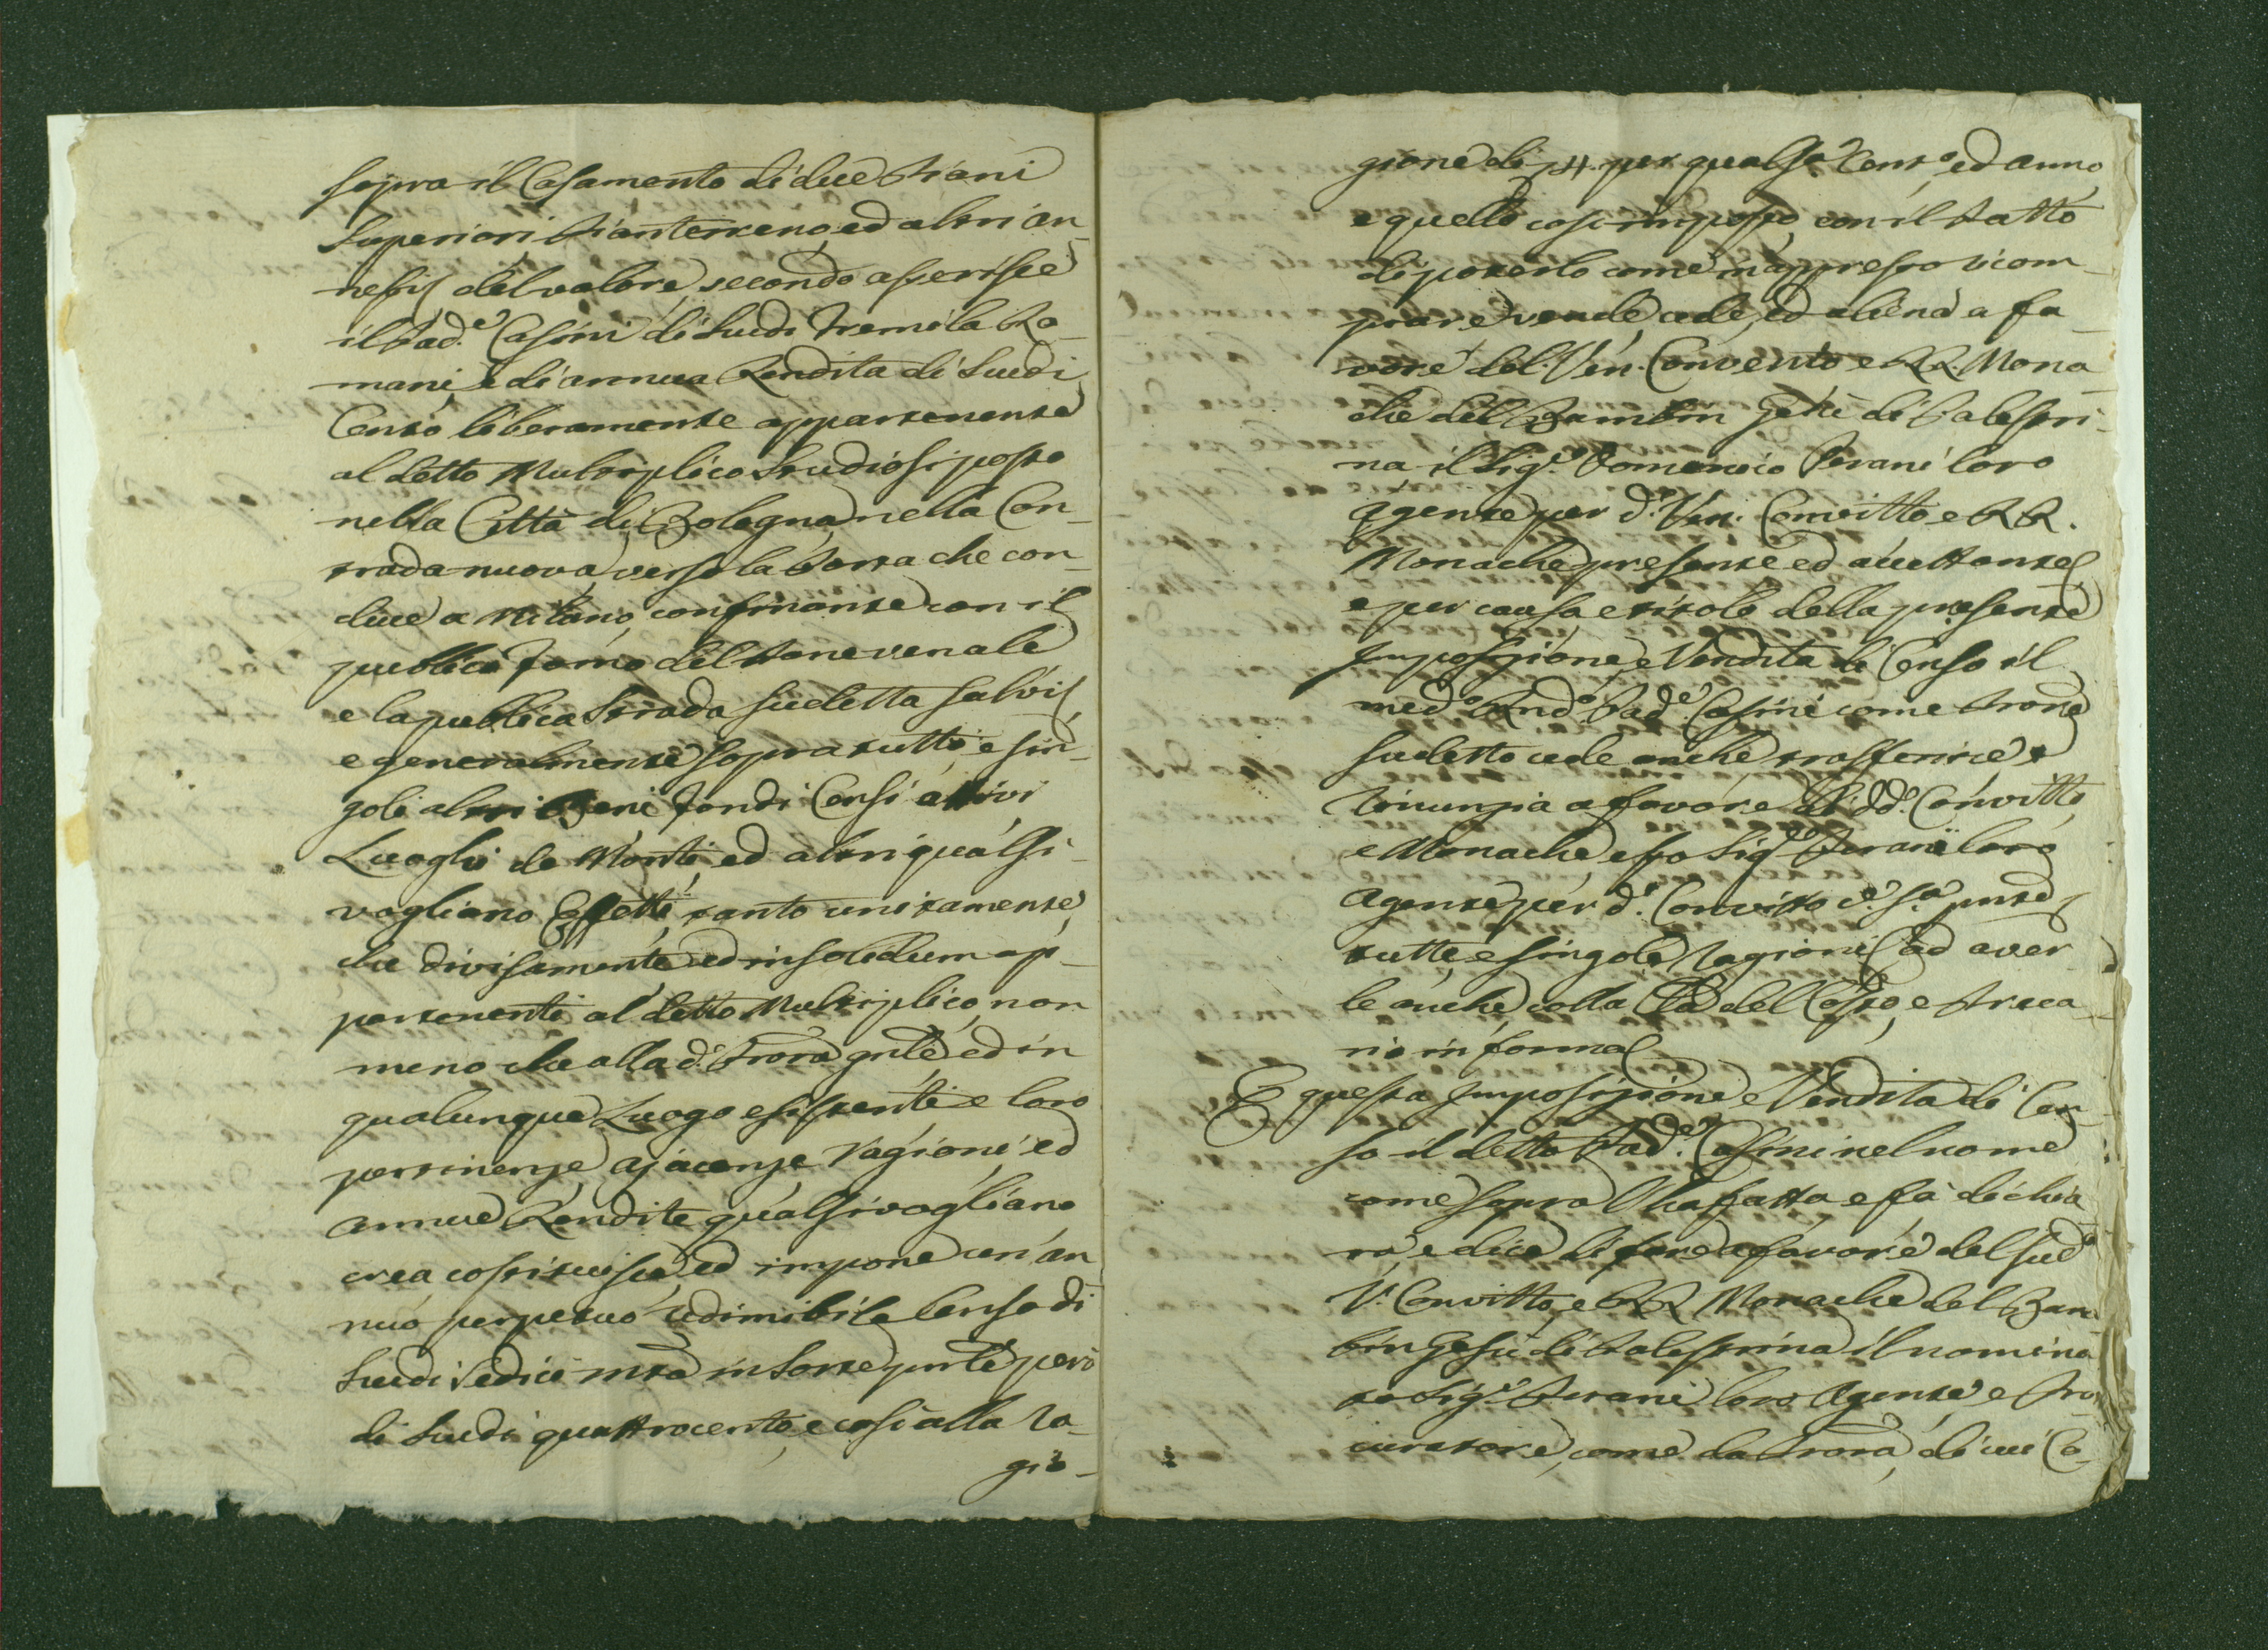 sopra il Casamento di due Piani
Superiori Pianterreno, ed altri an-
nessi, del valore, secondo asserisce
il Pad.e Casini di Scudi Tremila Ro-
mani, e di annua Rendita di Scudi
Cento liberamente appartenente
al detto Multiplico Studiosi posto
nella Città di Bologna, nella Con-
trada nuova, verso la Porta che con-
duce a Milano, confinante con il
publico Forno del Pane venale
e la publica Strada sudetta salvi,
e generalmente sopra tutti, e sin-
goli altri Beni fondi Censi attivi
Luoghi de Monti, ed altri qualsi-
vogliano Effetti, tanto unitamente,
che divisamente, ed in solidum ap-
partenenti al detto Multiplico, non
meno che alla d. Prova gnle, ed in
qualunque Luogo esistenti e loro
pertinenze, ajacenze, ragioni ed
annue Rendite qualsivogliano
crea costituisce, ed impone un'an-
nuo perpetuo redimibile Censo di
Scudi Sedici mta in Sorte pnle però
di Scudi quattrocento, e così alla ra-
gio-
gione di 4. per qualsa. Cento. ed anno
e quello così imposto, con il Patto
di poterlo come in appresso ricom-
prare, vende, cede, ed aliena a fa-
vore del Ven. Convento e RR. Mona-
che del Bambin Gesù di Palestri-
na il Sig.e Domenico Perani loro
Agente per d. Ven. Convitto, e RR.
Monache presente ed accettante,
e per causa e titolo della presente
Imposizione, e Vendita di Censo il
med.o Rndo. Pad.e Casini come Prone
sudetto cede anche, trasferisce e
rinunzia a favore di dd. Convitto,
e Monache, e p. o Sig.e Perani loro
Agente per d. Convitto c.e s.a pnte,
tutte, e singole, Ragioni, ad aver-
le anche colla Cla del Costo, e Preca-
rio in forma
E questa Imposizione, e Vendita di Cen-
so il detto Pad.e Casini nel nome
come sopra l'ha fatta e fà dichia-
ra, e dice di fare a favore del sud.o
V. Convitto, e RR. Monache del Bam-
bin Gesù di Palestrina il nomina-
to Sig.e Perani loro Agente e Pro-
curatore, come da Prova, di cui Co-